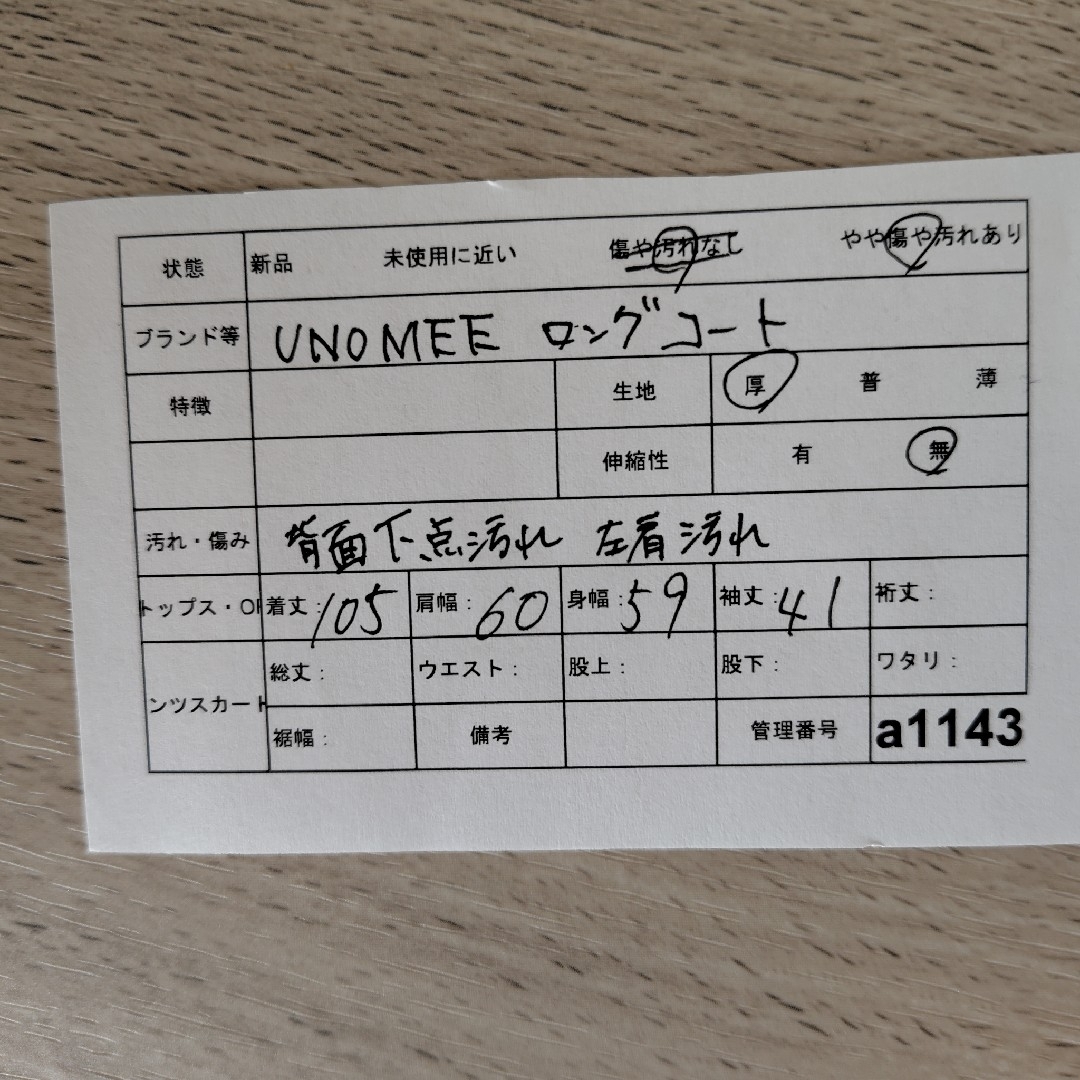 状態 新品 未使用に近い 傷や汚れなし やや傷や汚れあり
ブランド等 UNOMEE ロングコート
特徴 生地 厚 普 薄
伸縮性 有 無
汚れ・傷み 背面下点汚れ 左着汚れ
トップス・OP 着丈:105 肩幅:60 身幅:59 袖丈:41 裄丈:
総丈: ウエスト: 股上: 股下: ワタリ:
ンツスカート
裾幅: 備考 管理番号 a1143